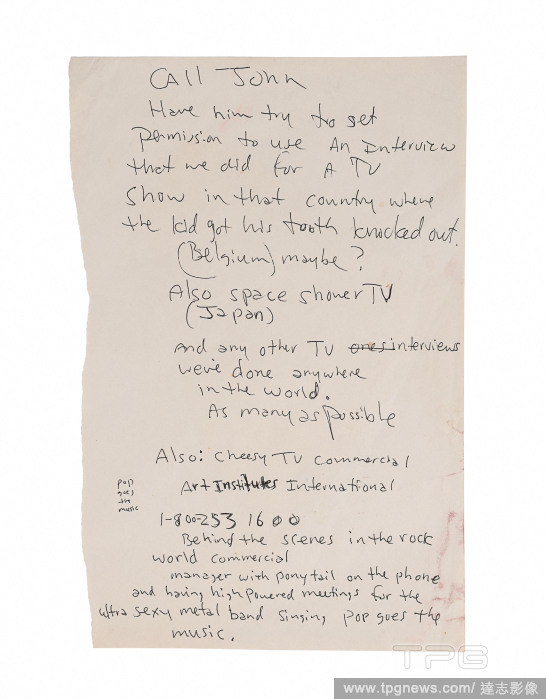 CAll John
Have him try to get
permission to use An Interview
that we did for A TV
show in that country where
the kid got his tooth knocked out.
(Belgium) maybe?
Also space shower TV
(Japan)
And any other TV ones interviews
we've done anywhere
in the world.
As many as possible
Also: Cheesy TV commercial
pop
goes
the
music
Art Institutes International
1-800-253 1600
Behind the scenes in the rock
world commercial
manager with ponytail on the phone
and having high powered meetings for the
ultra sexy metal band singing pop goes the
music.
TPG
www.tpgnews.com/ 達志影像